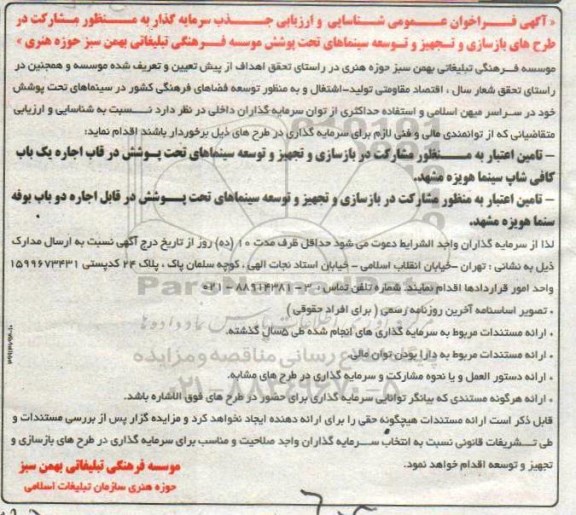 « آگهی فراخوان عمومی شناسایی و ارزیابی جذب سرمایه گذار به منظور مشارکت در
طرح های بازسازی و تجهیز و توسعه سینماهای تحت پوشش موسسه فرهنگی تبلیغاتی بهمن سبز حوزه هنری »
موسسه فرهنگی تبلیغاتی بهمن سبز حوزه هنری در راستای تحقق اهداف از پیش تعیین و تعریف شده موسسه و همچنین در
راستای تحقق شعار سال ، اقتصاد مقاومتی تولید-اشتغال و به منظور توسعه فضاهای فرهنگی کشور در سینماهای تحت پوشش
خود در سراسر میهن اسلامی و استفاده حداکثری از توان سرمایه گذاران داخلی در نظر دارد نسبت به شناسایی و ارزیابی
متقاضیانی که از توانمندی مالی و فنی لازم برای سرمایه گذاری در طرح های ذیل برخوردار باشند اقدام نماید:
– تامین اعتبار به منظور مشارکت در بازسازی و تجهیز و توسعه سینماهای تحت پوشش در قاب اجاره یک باب
کافی شاپ سینما هویزه مشهد.
– تامین اعتبار به منظور مشارکت در بازسازی و تجهیز و توسعه سینماهای تحت پوشش در قابل اجاره دو باب بوفه
سنما هویزه مشهد.
لذا از سرمایه گذاران واجد الشرایط دعوت می شود حداقل ظرف مدت ۱۰ (ده) روز از تاریخ درج آگهی نسبت به ارسال مدارک
ذیل به نشانی : تهران –خیابان انقلاب اسلامی – خیابان استاد نجات الهی ، کوچه سلمان پاک ، پلاک ۲۴ کدپستی ۱۵۹۹۶۷۳۴۳۱
واحد امور قراردادها اقدام نمایند. شماره تلفن تماس : ۳-۸۸۹۱۴۳۸۱-۰۲۱
• تصویر اساسنامه آخرین روزنامه رسمی ( برای افراد حقوقی )
• ارائه مستندات مربوط به سرمایه گذاری های انجام شده طی ۵سال گذشته.
• ارائه مستندات مربوط به دارا بودن توان مالی.
• ارائه دستور العمل و یا نحوه مشارکت و سرمایه گذاری در طرح های مشابه.
• ارائه هرگونه مستندی که بیانگر توانایی سرمایه گذاری برای حضور در طرح های فوق الاشاره باشد.
قابل ذکر است ارائه مستندات هیچگونه حقی را برای ارائه دهنده ایجاد نخواهد کرد و مزایده گزار پس از بررسی مستندات و
طی تشریفات قانونی نسبت به انتخاب سرمایه گذاران واجد صلاحیت و مناسب برای سرمایه گذاری در طرح های بازسازی و
تجهیز و توسعه اقدام خواهد نمود.
موسسه فرهنگی تبلیغاتی بهمن سبز
حوزه هنری سازمان تبلیغات اسلامی